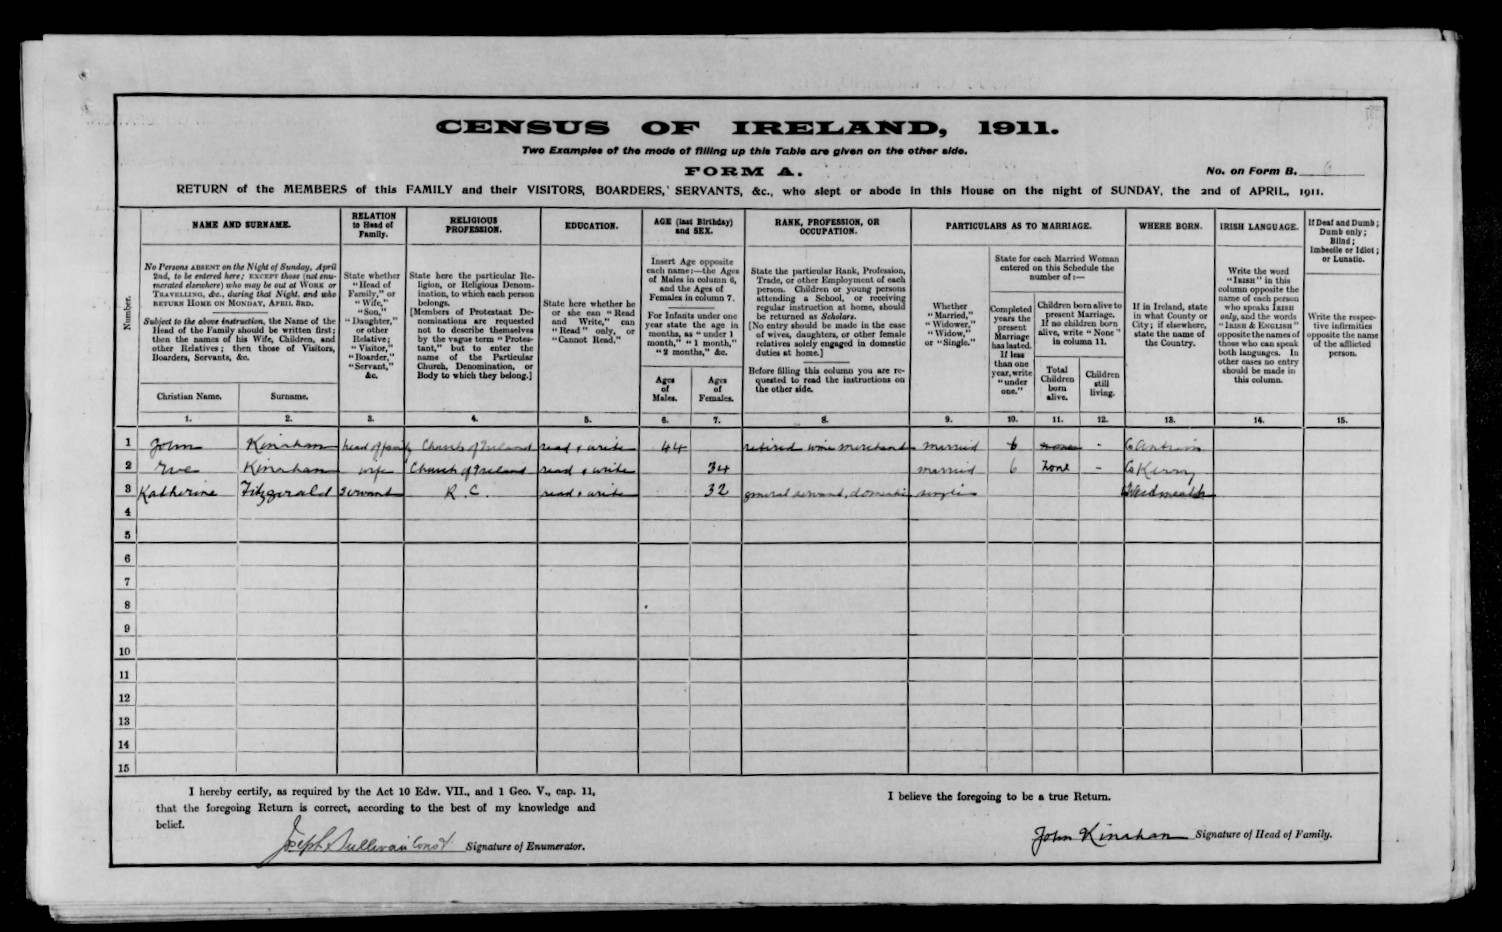 CENSUS OF IRELAND, 1911.
Two Examples of the mode of filling up this Table are given on the other side.
FORM A.
No. on Form B. 6
RETURN of the MEMBERS of this FAMILY and their VISITORS, BOARDERS, SERVANTS, &c., who slept or abode in this House on the night of SUNDAY, the 2nd of APRIL, 1911.
Number.
NAME AND SURNAME.
No Persons ABSENT on the Night of Sunday, April
2nd, to be entered here; EXCEPT those (not enu-
merated elsewhere) who may be out at WORK or
TRAVELLING, &c., during that Night, and who
RETURN HOME ON MONDAY, APRIL 3RD.
Subject to the above instruction, the Name of the
Head of the Family should be written first;
then the names of his Wife, Children, and
other Relatives; then those of Visitors,
Boarders, Servants, &c.
Christian Name.
Surname.
1.
2.
RELATION
to Head of
Family.
State whether
"Head of
Family," or
"Wife,"
"Son,"
"Daughter,"
or other
Relative;
"Visitor,"
"Boarder,"
"Servant,"
&c.
3.
RELIGIOUS
PROFESSION.
State here the particular Re-
ligion, or Religious Denom-
ination, to which each person
belongs.
[Members of Protestant De-
nominations are requested
not to describe themselves
by the vague term "Protes-
tant," but to enter the
name of the Particular
Church, Denomination, or
Body to which they belong.]
4.
EDUCATION.
State here whether he
or she can "Read
and Write," can
"Read" only, or
"Cannot Read."
5.
AGE (last Birthday)
and SEX.
Insert Age opposite
each name:—the Ages
of Males in column 6,
and the Ages of
Females in column 7.
For Infants under one
year state the age in
months, as "under 1
month," "1 month,"
"2 months," &c.
Ages
of
Males.
Ages
of
Females.
6.
7.
RANK, PROFESSION, OR
OCCUPATION.
State the particular Rank, Profession,
Trade, or other Employment of each
person. Children or young persons
attending a School, or receiving
regular instruction at home, should
be returned as Scholars.
[No entry should be made in the case
of wives, daughters, or other female
relatives solely engaged in domestic
duties at home.]
Before filling this column you are re-
quested to read the instructions on
the other side.
8.
PARTICULARS AS TO MARRIAGE.
Whether
"Married,"
"Widower,"
"Widow,"
or "Single."
9.
State for each Married Woman
entered on this Schedule the
number of:—
Completed
years the
present
Marriage
has lasted.
If less
than one
year, write
"under
one."
10.
Children born alive to
present Marriage.
If no children born
alive, write "None"
in column 11.
Total
Children
born
alive.
Children
still
living.
11.
12.
WHERE BORN.
If in Ireland, state
in what County or
City; if elsewhere,
state the name of
the Country.
13.
IRISH LANGUAGE.
Write the word
"IRISH" in this
column opposite the
name of each person
who speaks IRISH
only, and the words
"IRISH & ENGLISH"
opposite the names of
those who can speak
both languages. In
other cases no entry
should be made in
this column.
14.
If Deaf and Dumb;
Dumb only;
Blind;
Imbecile or Idiot;
or Lunatic.
Write the respec-
tive infirmities
opposite the name
of the afflicted
person.
15.
1 John Kinahan head of family Church of Ireland read & write 44 retired wine merchant married 6 none - Co Antrim
2 Eve Kinahan wife Church of Ireland read & write 34 married 6 none - Co Kerry
3 Katherine Fitzgerald servant R. C. read & write 32 general servant, domestic single Co Westmeath
4
5
6
7
8
9
10
11
12
13
14
15
I hereby certify, as required by the Act 10 Edw. VII., and 1 Geo. V., cap. 11,
that the foregoing Return is correct, according to the best of my knowledge and
belief.
Joseph Sullivan Const Signature of Enumerator.
I believe the foregoing to be a true Return.
John Kinahan Signature of Head of Family.